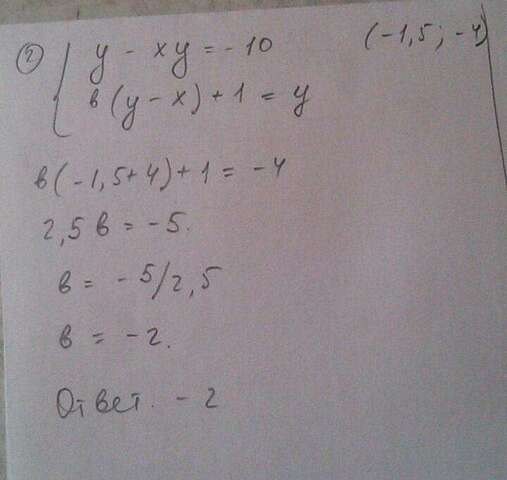 ② { y - xy = -10 (-1,5; -4)
в(y - x) + 1 = y
в(-1,5+4) + 1 = -4
2,5 в = -5.
в = -5/2,5
в = -2.
Ответ. -2